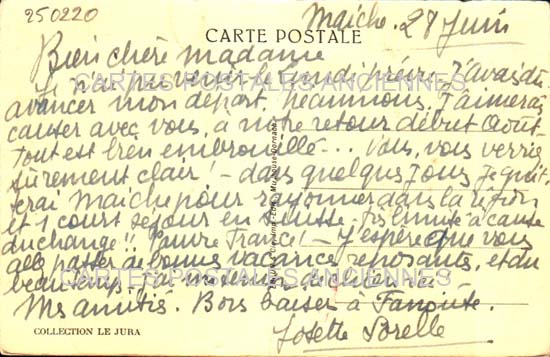 250220
Maîche. 28 Juin
CARTE POSTALE
Bien chère Madame
Je n'ai pu venir lundi J'avais dû
avancer mon départ. Néanmoins. J'aimerai
causer avec vous, à notre retour début Août
tout est bien embrouillé --- Vous, vous verriez
sûrement clair! - dans quelques jours je quit
terai Maîche pour rayonner dans la région
et 1 court séjour en Suisse - très limité à cause
du change!! Pauvre France! - J'espère que vous
allez passer de bonnes vacances reposantes, et du
beau temps!
Mes amitiés. Bons baiser à
Josette Sorelle
CARTES POSTALES ANCIENNES
CARTES POSTALES ANCIENNES
COLLECTION LE JURA